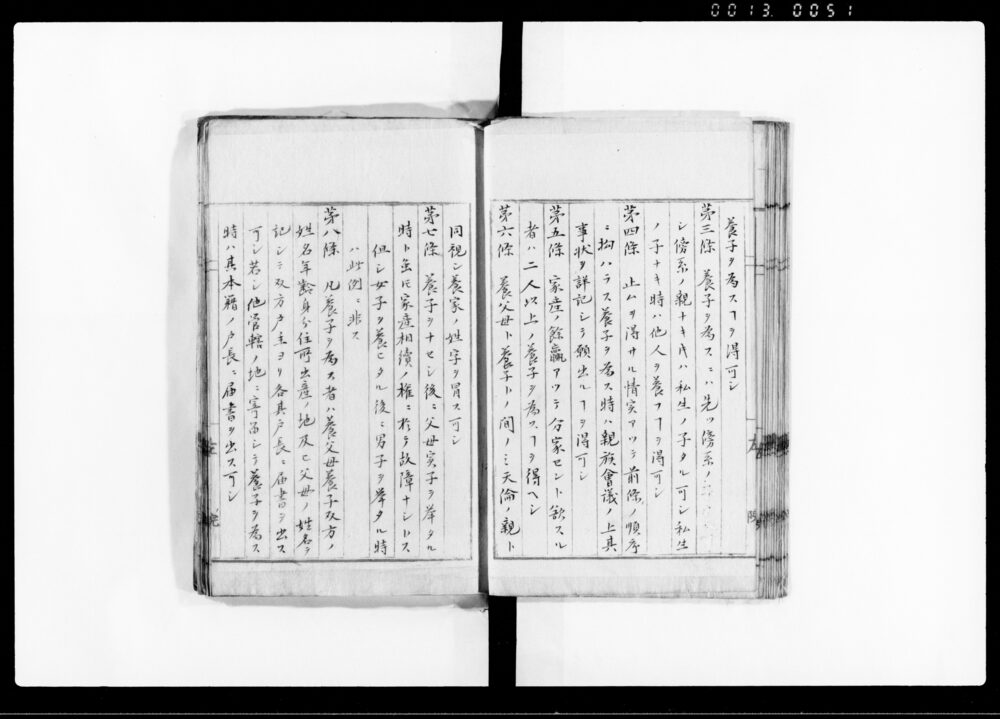 0013. 0051
養子ヲ為スヿヲ得可シ
第三條 養子ヲ為スニハ先ツ傍系ノ
シ傍系ノ親ナキ片ハ私生ノ子タル可シ私生
ノ子ナキ時ハ他人ヲ養フヿヲ得可シ
第四條 止ムヲ得サル情実アツテ前條ノ順序
ニ拘ハラス養子ヲ為ス時ハ親族會議ノ上其
事状ヲ詳記シテ願出ルヿヲ得可シ
第五條 家産ノ餘贏アツテ分家セント欲スル
者ハ二人以上ノ養子ヲ為スヿヲ得ヘシ
第六條 養父母ト養子トノ間ノミ天倫ノ親ト
同視シ養家ノ姓字ヲ冒ス可シ
第七條 養子ヲナセシ後ニ父母実子ヲ挙タル
時ト虽𪜈家産相續ノ権ニ於テ故障ナシトス
但シ女子ヲ養ヒタル後ニ男子ヲ挙タル時
ハ此例ニ非ス
第八條 凡養子ヲ為ス者ハ養父母養子双方ノ
姓名年齢身分住所出産ノ地及ヒ父母ノ姓名ヲ
記シテ双方戸主ヨリ各其戸長ニ届書ヲ出ス
可シ若シ他管轄ノ地ニ寄留シテ養子ヲ為ス
時ハ其本籍ノ戸長ニ届書ヲ出ス可シ
左 院